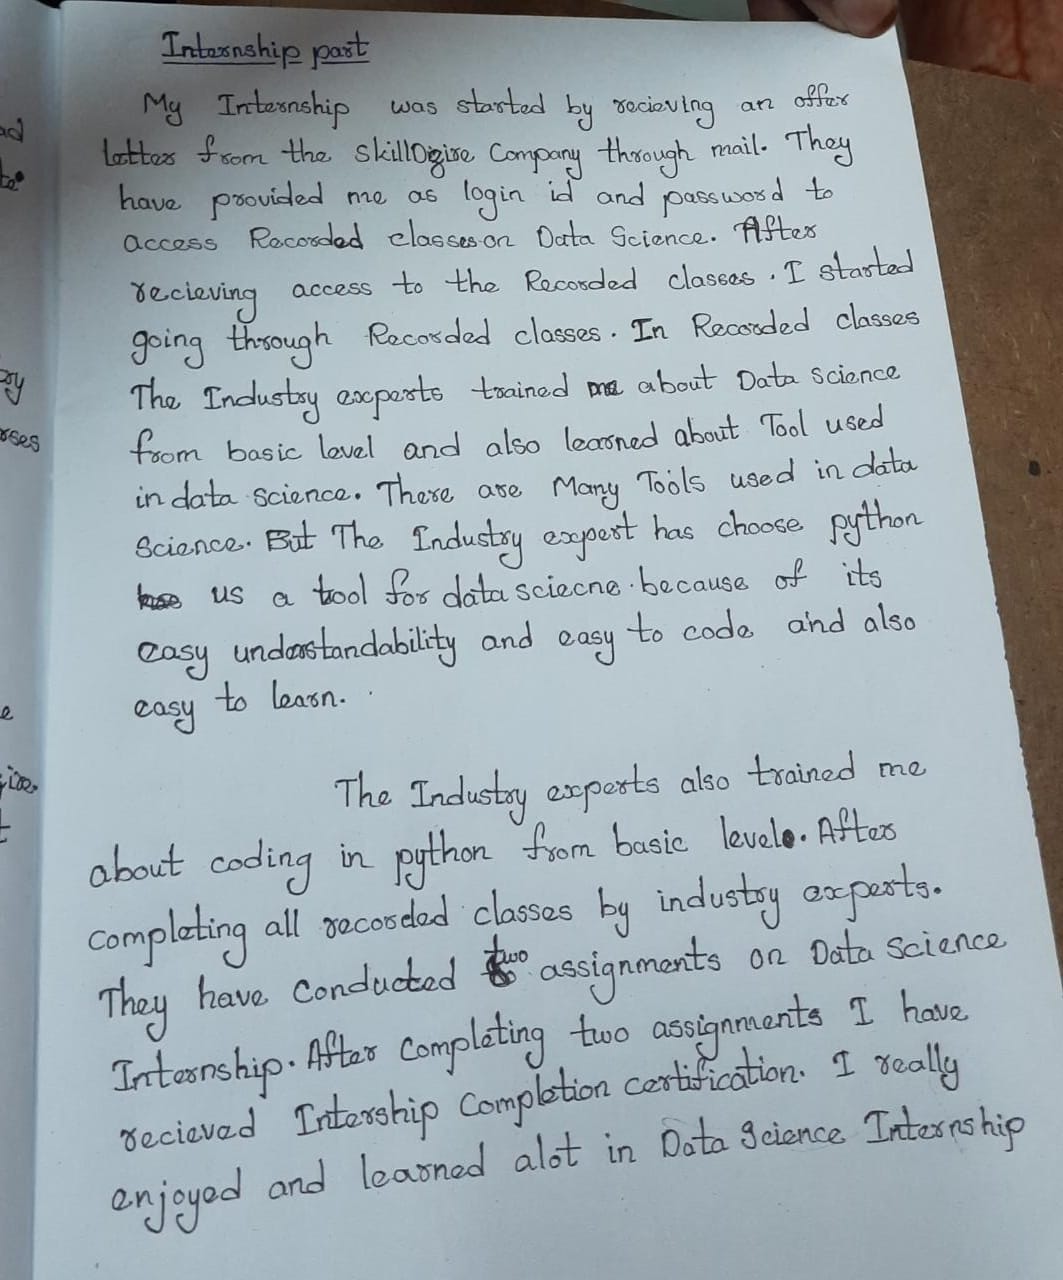 Internship part
My Internship was started by recieving an offer
letter from the SkillDzire Company through mail. They
have provided me as login id and password to
access Recorded classes on Data Science. After
recieving access to the Recorded classes. I started
going through Recorded classes. In Recorded classes
The Industry experts trained me about Data Science
from basic level and also learned about Tool used
in data science. There are Many Tools used in data
Science. But The Industry expert has choose python
us a tool for data sciecne because of its
easy understandability and easy to code and also
easy to learn.
The Industry experts also trained me
about coding in python from basic level. After
completing all recorded classes by industry experts.
They have conducted two assignments on Data Science
Internship. After completing two assignments I have
recieved Intership Completion certification. I really
enjoyed and learned alot in Data Science Internship
ad
ry
rses
e